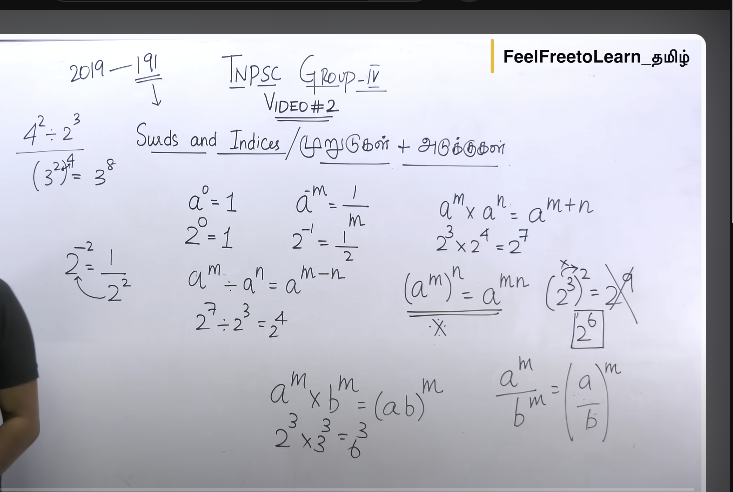 FeelFreetoLearn_தமிழ்
2019 — 191
TNPSC GROUP-IV
VIDEO #2
Surds and Indices / முறுடுகள் + அடுக்குகள்
4² ÷ 2³
(3²)⁴ = 3⁸
a⁰ = 1
2⁰ = 1
a⁻ᵐ = 1/m
2⁻¹ = 1/2
aᵐ x aⁿ = aᵐ⁺ⁿ
2³ x 2⁴ = 2⁷
2⁻² = 1/2²
aᵐ ÷ aⁿ = aᵐ⁻ⁿ
2⁷ ÷ 2³ = 2⁴
(aᵐ)ⁿ = aᵐⁿ
(2³)² = 2⁹
2⁶
aᵐ x bᵐ = (ab)ᵐ
2³ x 3³ = 6³
aᵐ/bᵐ = (a/b)ᵐ